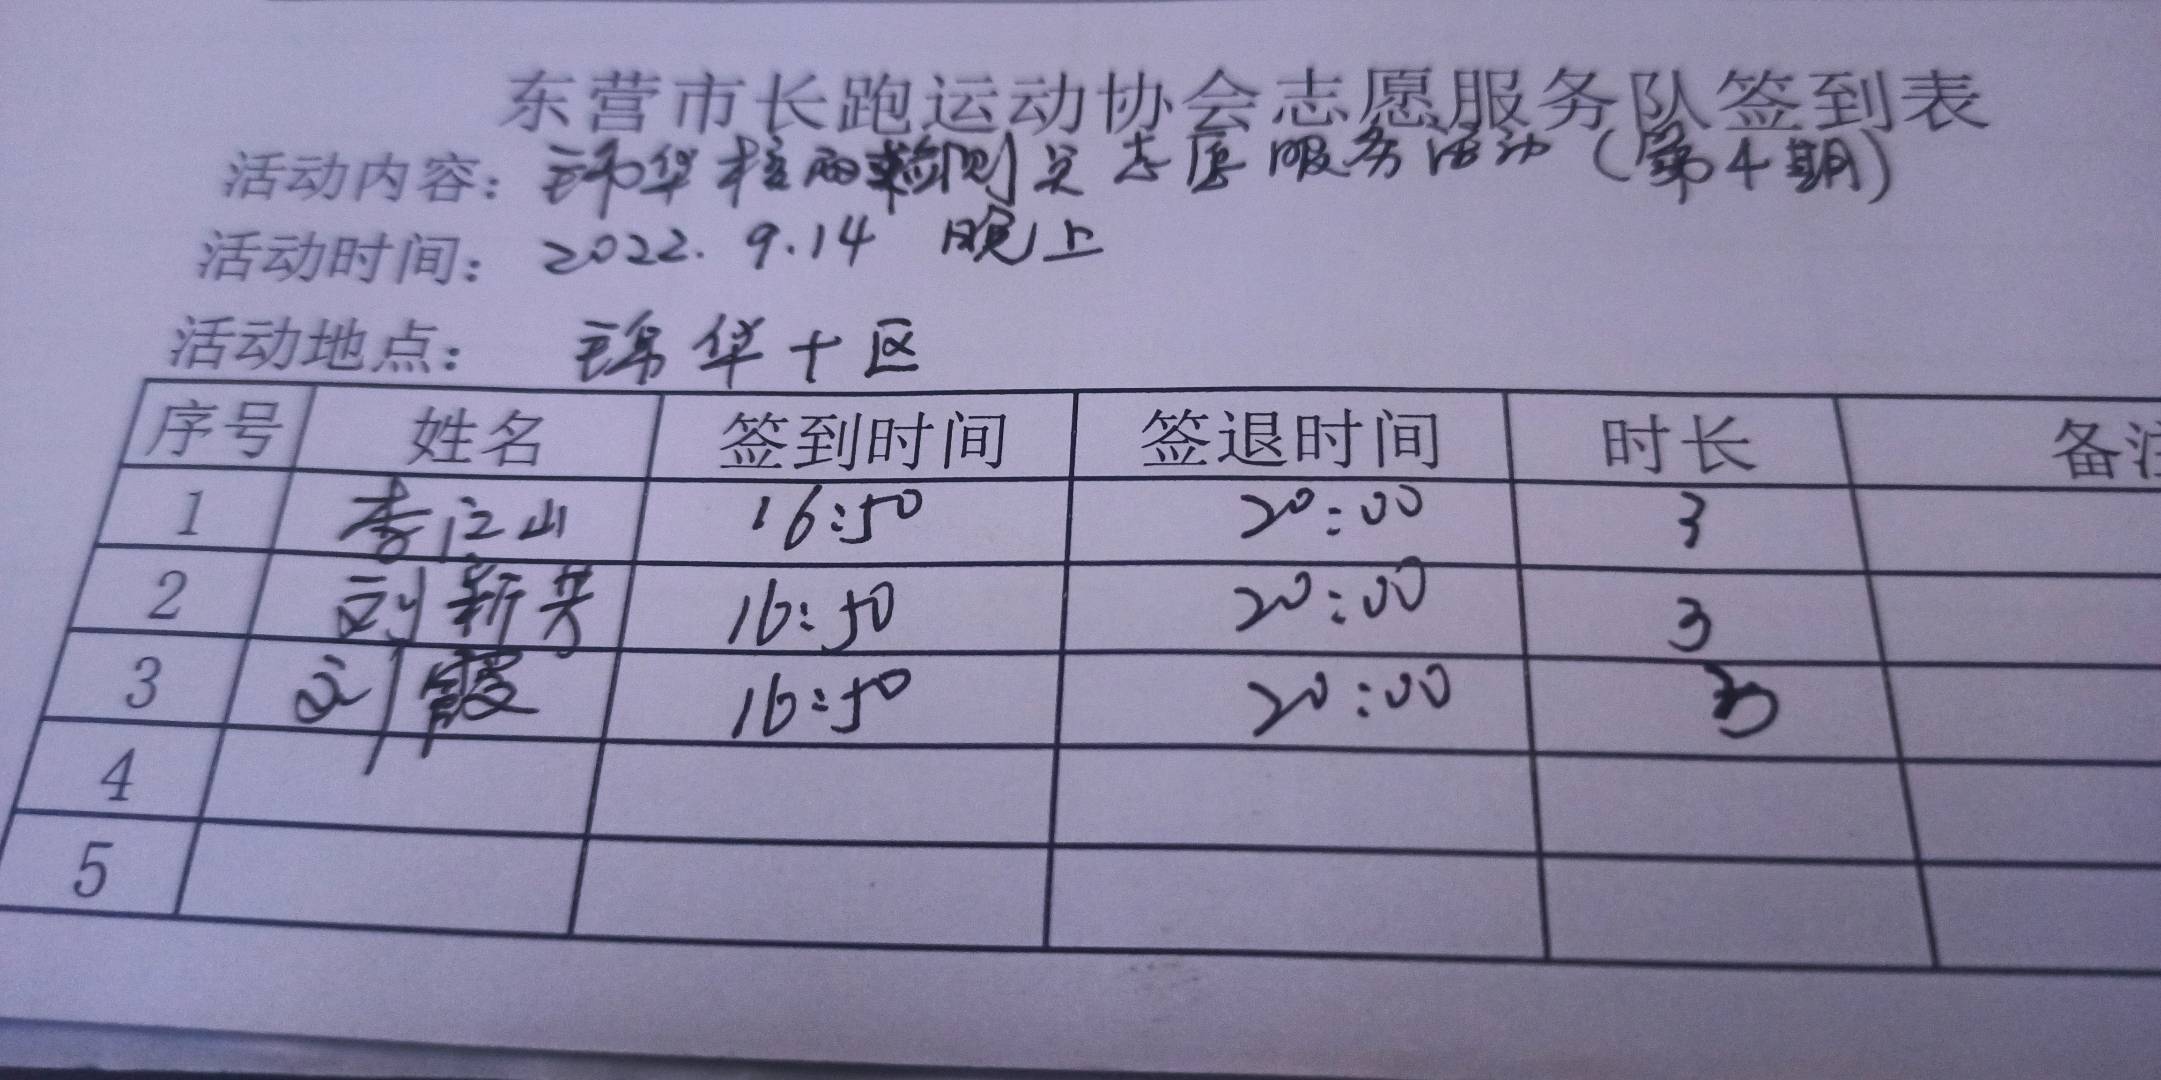 东营市长跑运动协会志愿服务队签到表
活动内容：锦华核酸检测点志愿服务活动（第4期）
活动时间：2022.9.14 晚上
活动地点：锦华十区
序号 姓名 签到时间 签退时间 时长 备注
1 李江山 16:50 20:00 3
2 刘新芳 16:50 20:00 3
3 刘霞 16:50 20:00 3
4
5